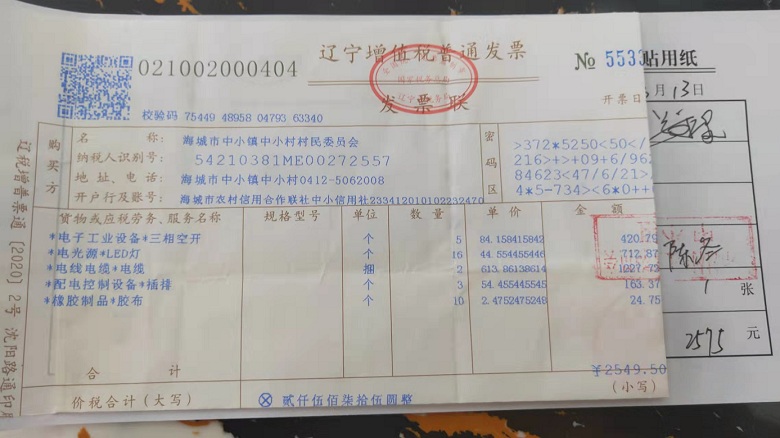 021002000404
辽宁增值税普通发票
发票联
№ 5533
开票日
校验码 75449 48958 04793 63340
购买方
名 称: 海城市中小镇中小村村民委员会
纳税人识别号: 54210381ME00272557
地址、电话: 海城市中小镇中小村0412-5062008
开户行及账号: 海城市农村信用合作联社中小信用社233412010102232470
密码区
>372*5250<50</
216>+>+09+6/96
84623</6/21>>
4*5-734><6*0++
货物或应税劳务、服务名称 规格型号 单位 数量 单价 金额
*电子工业设备*三相空开 个 5 84.158415842 420.79
*电光源*LED灯 个 16 44.554455446 712.87
*电线电缆*电缆 捆 2 613.86138614 1227.72
*配电控制设备*插排 个 3 54.455445545 163.37
*橡胶制品*胶布 个 10 2.4752475249 24.75
合计 ¥2549.50
价税合计(大写) ⊗ 贰仟伍佰柒拾伍圆整 (小写)
辽税增普票通〔2020〕2号沈阳路通印
贴用纸
月13日
1 张
2575 元